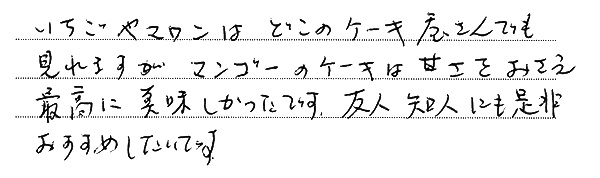 いちごやマロンは どこのケーキ屋さんでも
見れますが マンゴーのケーキは甘さをおさえ
最高に美味しかったです。友人 知人にも是非
おすすめしたいです。